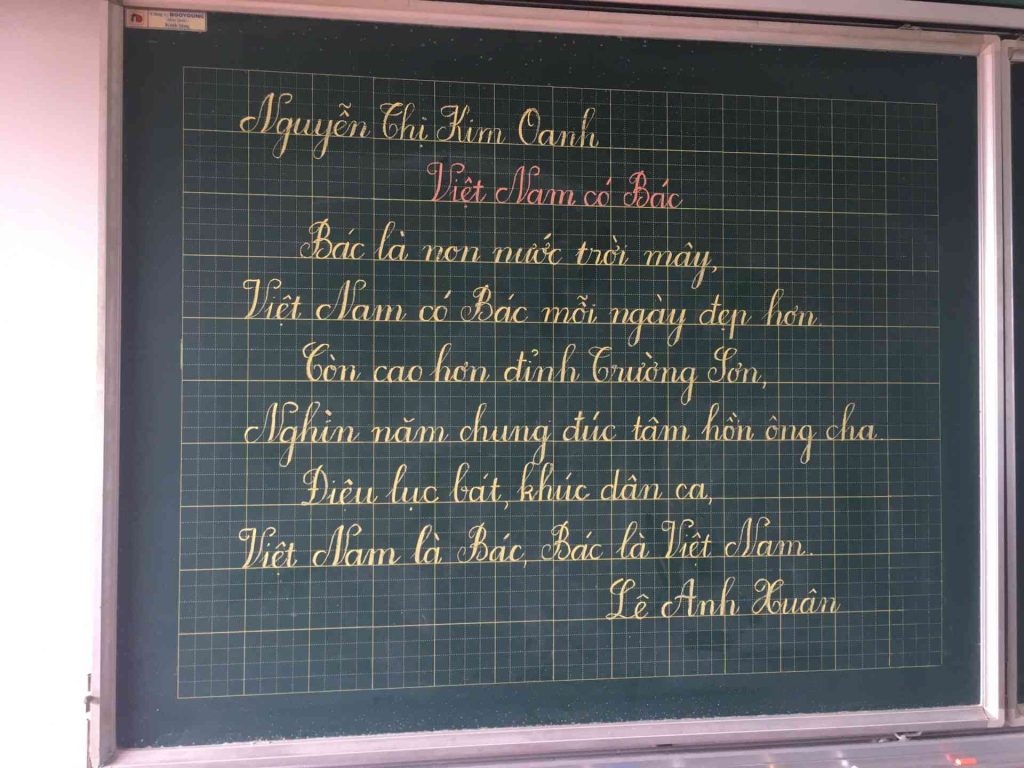 BOOYOUNG
Nguyễn Thị Kim Oanh
Việt Nam có Bác
Bác là non nước trời mây,
Việt Nam có Bác mỗi ngày đẹp hơn.
Còn cao hơn đỉnh Trường Sơn,
Nghìn năm chung đúc tâm hồn ông cha.
Điệu lục bát, khúc dân ca,
Việt Nam là Bác, Bác là Việt Nam.
Lê Anh Xuân